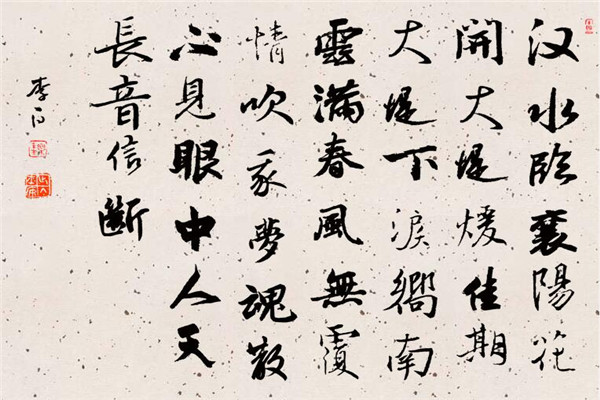 汉水臨襄陽花
開大堤煖佳期
大堤下淚嚮南
雲滿春風無覆
情吹我夢魂散
不見眼中人天
長音信斷
李白